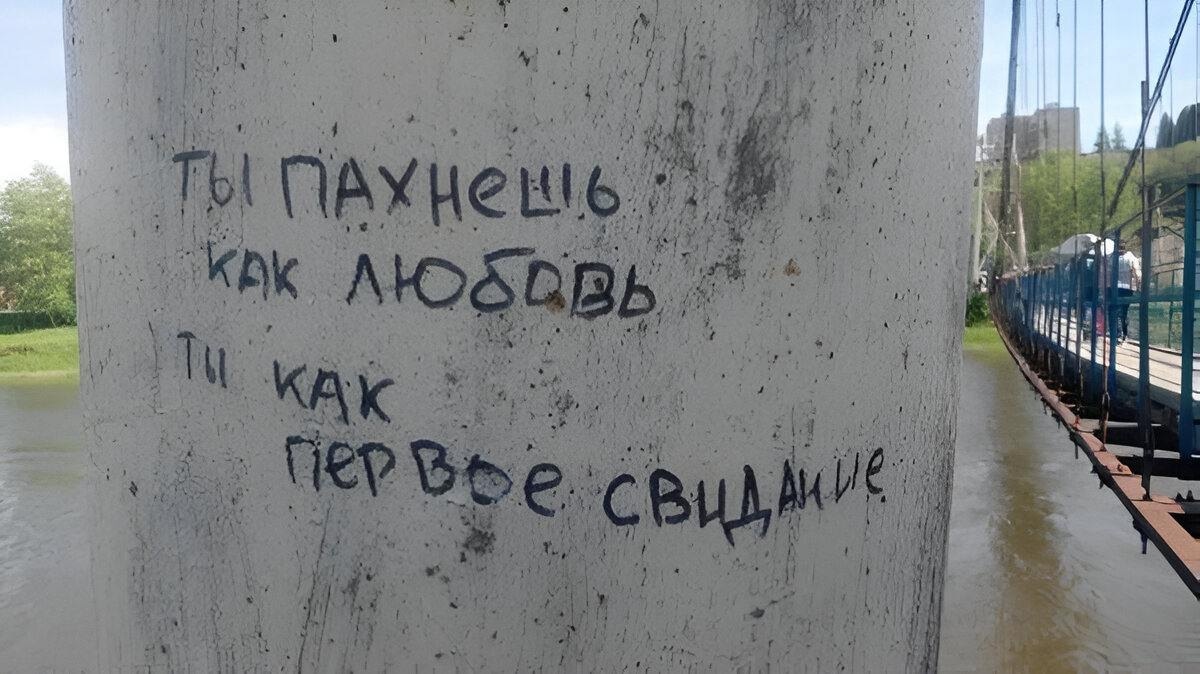 ты пахнешь
как любовь
ты как
первое свидание